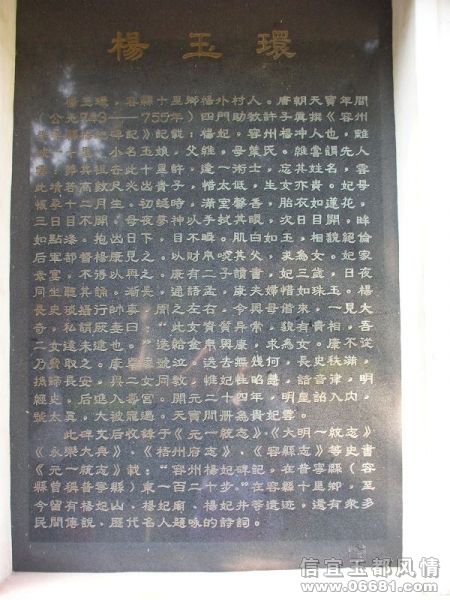 楊玉環
楊玉環,容縣十里鄉楊外村人。唐朝天寶年間
(公元743——755年)四門助教許子真撰《容州
碑記》記載:楊妃。容州楊冲人也,離
城一十里。小名玉娘,父維。母葉氏。維嘗謂先人
葬其祖去此十里許,逢一術士,忘其姓名,雲
此墳若高数尺必出貴子,惜太低,生女亦貴。妃母
懷孕十二月生,初誕時,滿室馨香,胎衣如蓮花,
三日目不開,母夜夢神以手拭其眼,次日目開,眸
如點漆。抱出日下,目不瞬。肌白如玉,相貌絕倫
后軍都督楊康見之。以財帛啗其父,求為女。妃家
素窘,不得以與之。康有二子讀書,妃三歲,日夜
同坐聽其誦。漸長,通語孟,康夫婦惜如珠玉。楊
長史攝行帥事,聞之左右,令與母偕來,一見大
奇,私謂厥妻曰:“此女資質异常,貌有貴相,吾
二女遠未逮也。”遂給金帛與康,求為女。康不從
乃脅取之。康舉家號泣,送去無幾何,長史秩滿,
携歸長安,與二女同教,惟妃性聰慧,諳音津,明
經史,后進入壽宮。開元二十四年,明皇詔入内,
號太真。大被寵遇。天寶間冊為貴妃雲。
此碑文后收錄于《元一統志》、《大明一統志》
《永樂大典》、《梧州府志》、《容縣志》等史書
《元一統志》載:“容州楊妃碑記,在普寧縣(容
縣曾稱普寧縣)東一百二十步。”在容縣十里鄉,至
今留有楊妃山、楊妃廟、楊妃井等遺迹,還有衆多
民間傳說、歷代名人題咏的詩詞。
信宜玉都风情
www.06681.com